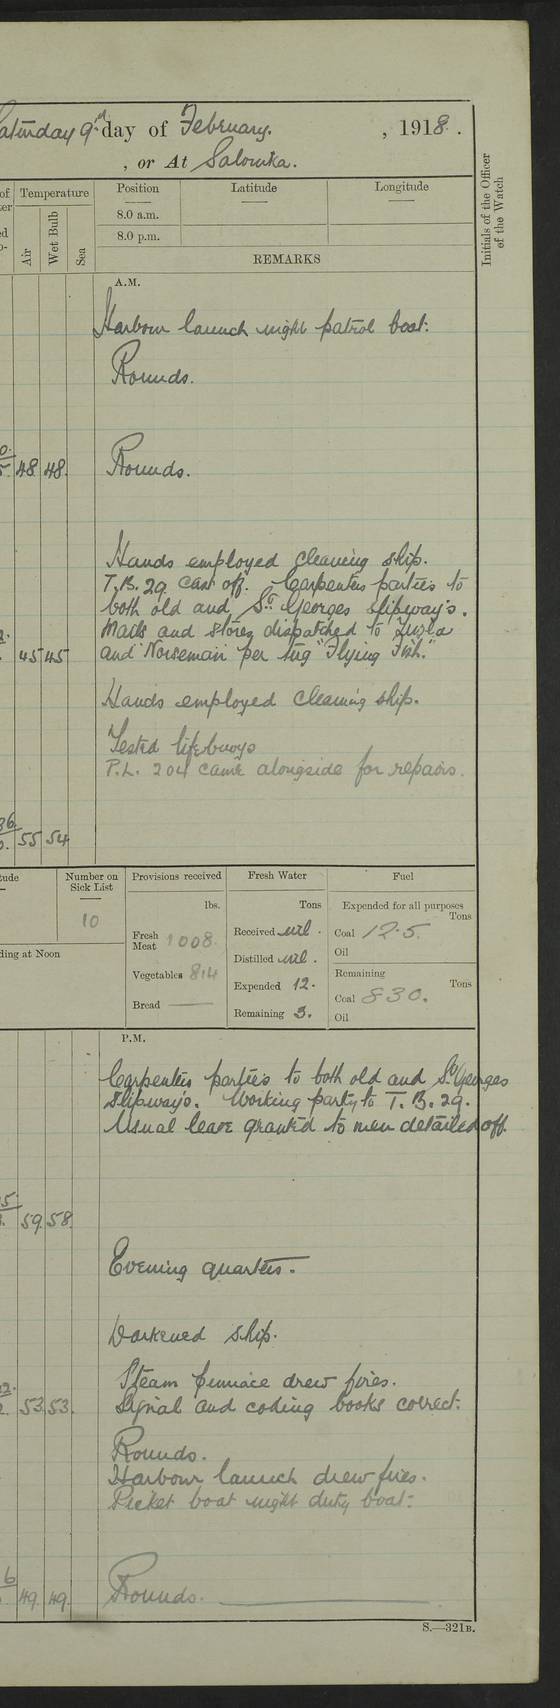 Saturday 9th day of February. , 1918.
, or At Salonika.
Temperature
Air
Wet Bulb
Sea
Position
Latitude
Longitude
8.0 a.m.
8.0 p.m.
REMARKS
Initials of the Officer
of the Watch
A.M.
Harbour launch night patrol boat.
Rounds.
48 48. Rounds.
Hands employed cleaning ship.
T.B. 29 cast off. Carpenters parties to
both old and St Georges slipway's.
Mails and stores dispatched to
45 45 and "Norseman" per tug "Flying Fish."
Hands employed cleaning ship.
Tested lifebuoys
P.L. 204 came alongside for repairs.
55 54
Number on
Sick List
10
Provisions received
lbs.
Fresh
Meat 1008.
Vegetables 814
Bread
Fresh Water
Tons
Received nil.
Distilled nil.
Expended 12.
Remaining 3.
Fuel
Expended for all purposes
Tons
Coal 12.5.
Oil
Remaining
Tons
Coal 830.
Oil
ding at Noon
P.M.
Carpenters parties to both old and St Georges
slipways. Working party to T.B. 29.
Usual leave granted to men detailed off.
59. 58.
Evening quarters.
Darkened ship.
Steam pinnace drew fires.
53 53. Signal and coding books correct.
Rounds.
Harbour launch drew fires.
Picket boat night duty boat.
49. 49. Rounds.
S.—321B.